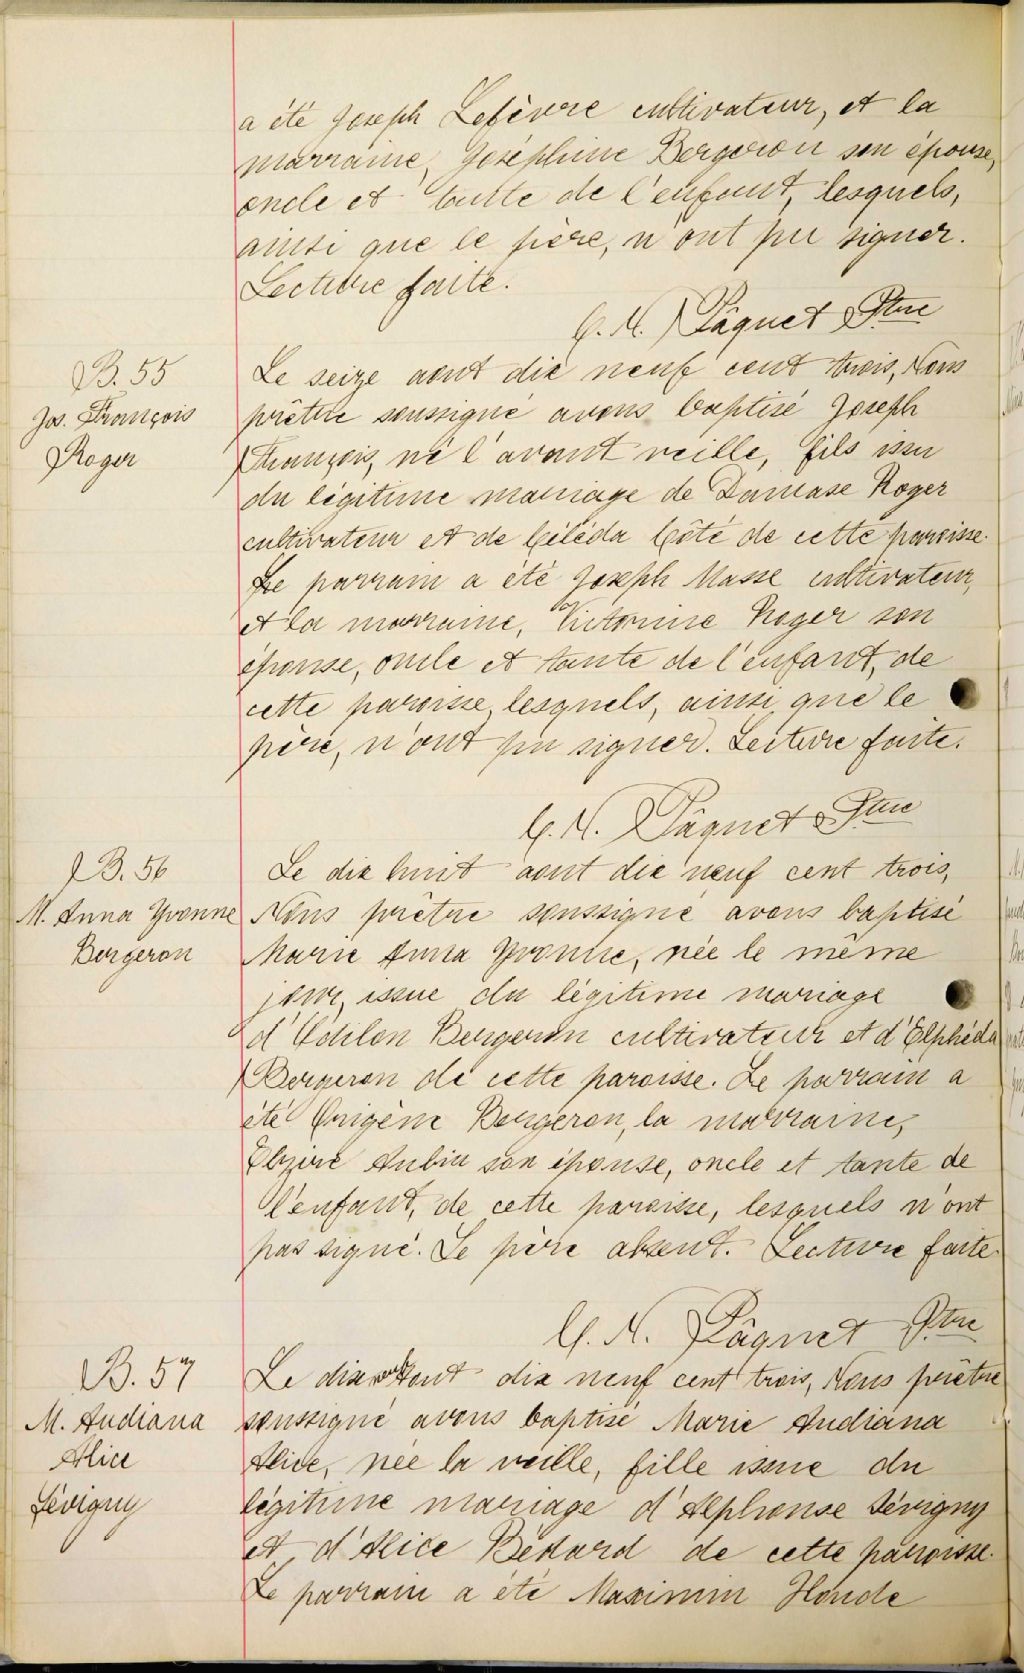 a été Joseph Lefèvre cultivateur, et la
marraine, Joséphine Bergeron son épouse,
oncle et tante de l'enfant, lesquels,
ainsi que le père, n'ont pu signer.
Lecture faite.
C. N. Pâquet Ptre
B. 55
Jos. François
Roger
Le seize aout dix neuf cent trois, Nous
prêtre soussigné avons baptisé Joseph
François, né l'avant veille, fils issu
du légitime mariage de Damase Roger
cultivateur et de Céléda Côté de cette paroisse.
Le parrain a été Joseph Masse cultivateur,
et la marraine, Victorine Roger son
épouse, oncle et tante de l'enfant, de
cette paroisse, lesquels, ainsi que le
père, n'ont pu signer. Lecture faite.
C. N. Pâquet Ptre
B. 56
M. Anna Yvonne
Bergeron
Le dix huit aout dix neuf cent trois,
Nous prêtre soussigné avons baptisé
Marie Anna Yvonne, née le même
jour, issue du légitime mariage
d'Odilon Bergeron cultivateur et d'Elphéda
Bergeron de cette paroisse. Le parrain a
été Origène Bergeron, la marraine,
Elzire Aubin son épouse, oncle et tante de
l'enfant, de cette paroisse, lesquels n'ont
pas signé. Le père absent. Lecture faite.
C. N. Pâquet Ptre
B. 57
M. Audiana
Alice
Sévigny
Le aout dix neuf cent trois, Nous prêtre
soussigné avons baptisé Marie Audiana
Alice, née la veille, fille issue du
légitime mariage d'Alphonse Sévigny
et d'Alice Bédard de cette paroisse.
Le parrain a été Maximin Houde